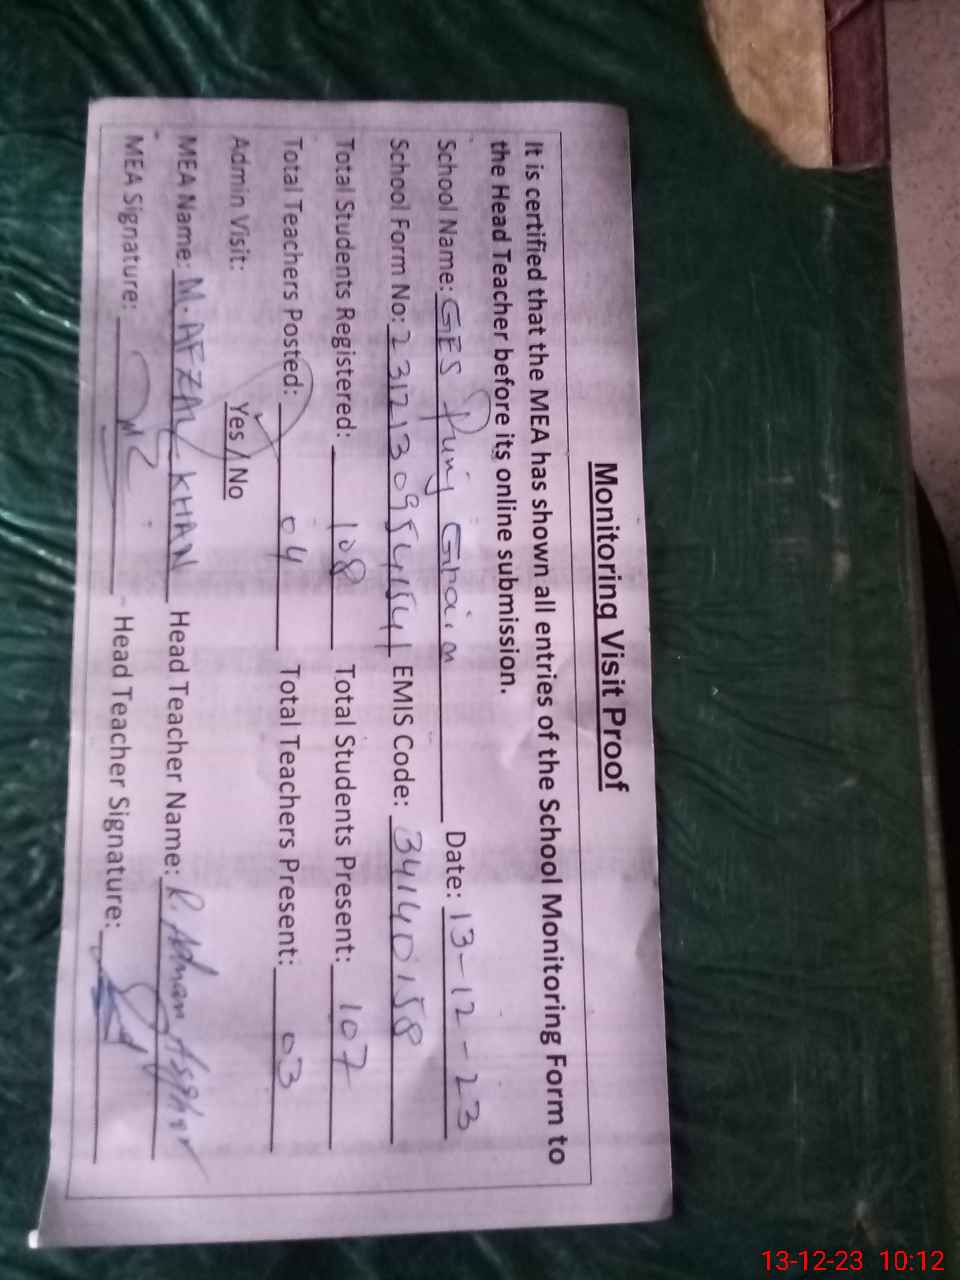 Monitoring Visit Proof
It is certified that the MEA has shown all entries of the School Monitoring Form to
the Head Teacher before its online submission.
School Name: GES Punj Ghrain Date: 13-12-23
School Form No: EMIS Code: 34140158
Total Students Registered: 108 Total Students Present: 107
Total Teachers Posted: 04 Total Teachers Present: 03
Admin Visit: Yes / No
MEA Name: M. AFZAL KHAN Head Teacher Name: R. Adnan Asghar
MEA Signature: Head Teacher Signature:
13-12-23 10:12